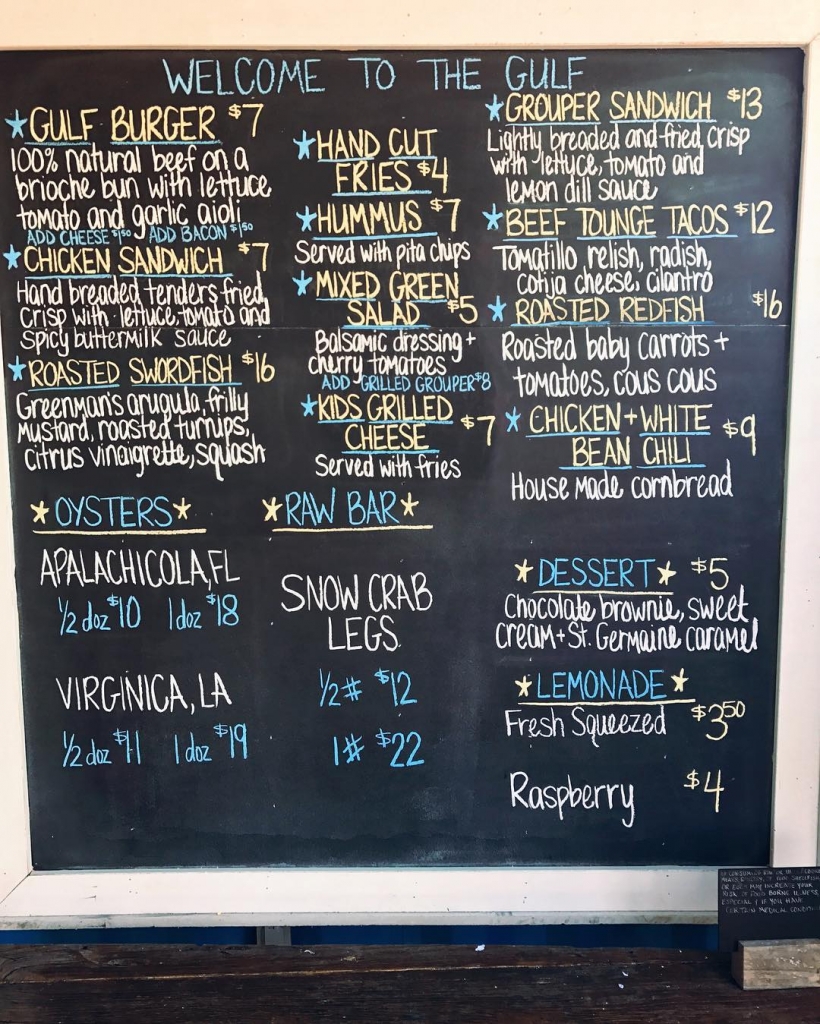 WELCOME TO THE GULF
GULF BURGER $7
100% natural beef on a
brioche bun with lettuce
tomato and garlic aioli
ADD CHEESE $1.50 ADD BACON $1.50
CHICKEN SANDWICH $7
Hand breaded tenders fried
crisp with lettuce, tomato and
spicy buttermilk sauce
ROASTED SWORDFISH $16
Greenman's arugula, frilly
mustard, roasted turnips,
citrus vinaigrette, squash
HAND CUT
FRIES $4
HUMMUS $7
Served with pita chips
MIXED GREEN
SALAD $5
Balsamic dressing +
cherry tomatoes
ADD GRILLED GROUPER $8
KIDS GRILLED
CHEESE $7
Served with fries
GROUPER SANDWICH $13
Lightly breaded and fried crisp
with lettuce, tomato and
lemon dill sauce
BEEF TOUNGE TACOS $12
Tomatillo relish, radish,
cotija cheese, cilantro
ROASTED REDFISH $16
Roasted baby carrots +
tomatoes, cous cous
CHICKEN + WHITE
BEAN CHILI $9
House made cornbread
OYSTERS
APALACHICOLA, FL
1/2 doz $10 1 doz $18
VIRGINICA, LA
1/2 doz $11 1 doz $19
RAW BAR
SNOW CRAB
LEGS
1/2 # $12
1# $22
DESSERT $5
Chocolate brownie, sweet
cream + St. Germaine caramel
LEMONADE
Fresh Squeezed $3.50
Raspberry $4
OR EGGS MAY INCREASE YOUR
RISK OF FOOD BORNE ILLNESS,
IF YOU HAVE
CERTAIN MEDICAL